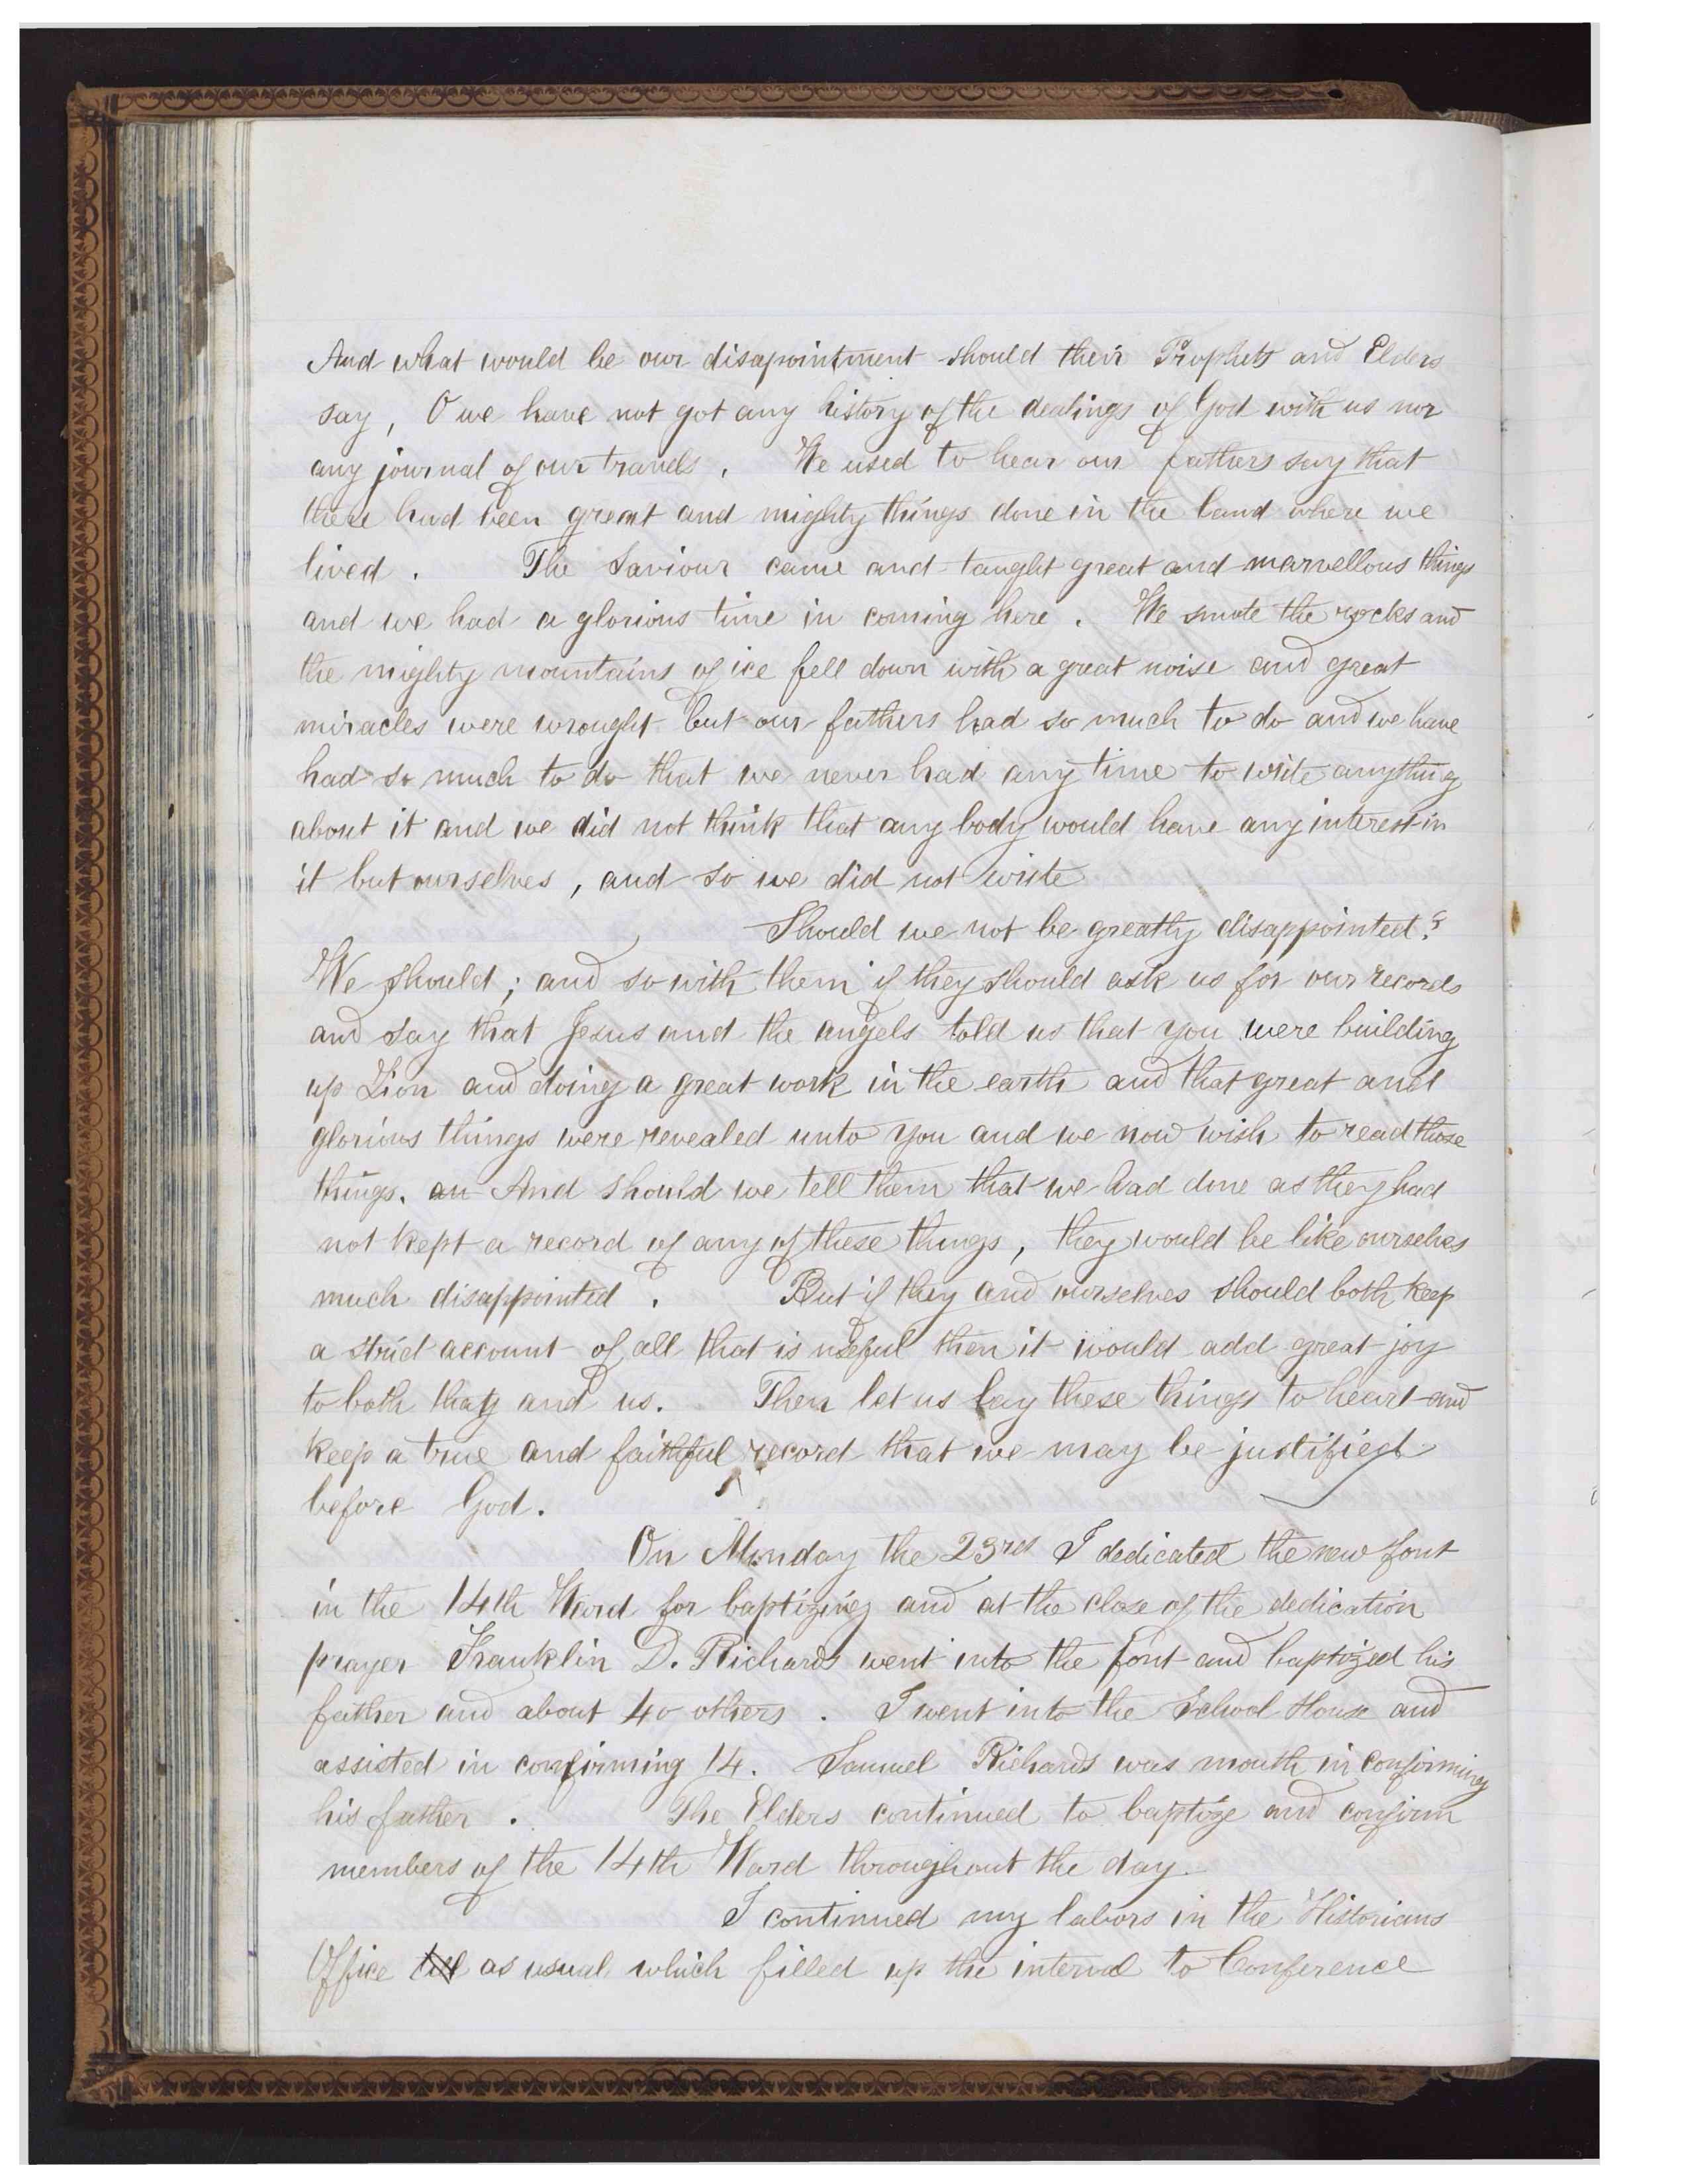 And what would be our disapointment should their Prophets and Elders
say, O we have not got any history of the dealings of God with us nor
any journal of our travels. We used to hear our fathers say that
there had been great and mighty things done in the land where we
lived. The Saviour came and taught great and marvellous things
and we had a glorious time in coming here. We smote the rocks and
the mighty mountains of ice fell down with a great noise and great
miracles were wrought but our fathers had so much to do and we have
had so much to do that we never had any time to write anything
about it and we did not think that any body would have any interest in
it but ourselves, and so we did not write
Should we not be greatly disappointed?
We should; and so with them if they should ask us for our records
and say that Jesus and the angels told us that you were building
up Zion and doing a great work in the earth and that great and
glorious things were revealed unto you and we now wish to read those
things. an And should we tell them that we had done as they had
not kept a record of any of these things, they would be like ourselves
much disappointed. But if they and ourselves should both keep
a strict account of all that is useful then it would add great joy
to both they and us. Then let us lay these things to heart and
keep a true and faithful record that we may be justified
before God.
On Monday the 23rd I dedicated the new font
in the 14th Ward for baptizing and at the close of the dedication
prayer Franklin D. Richards went into the font and baptized his
father and about 40 others. I went into the School House and
assisted in confirming 14. Samuel Richards was mouth in confirming
his father. The Elders continued to baptize and confirm
members of the 14th Ward throughout the day.
I continued my labors in the Historians
Office till as usual which filled up the interval to Conference